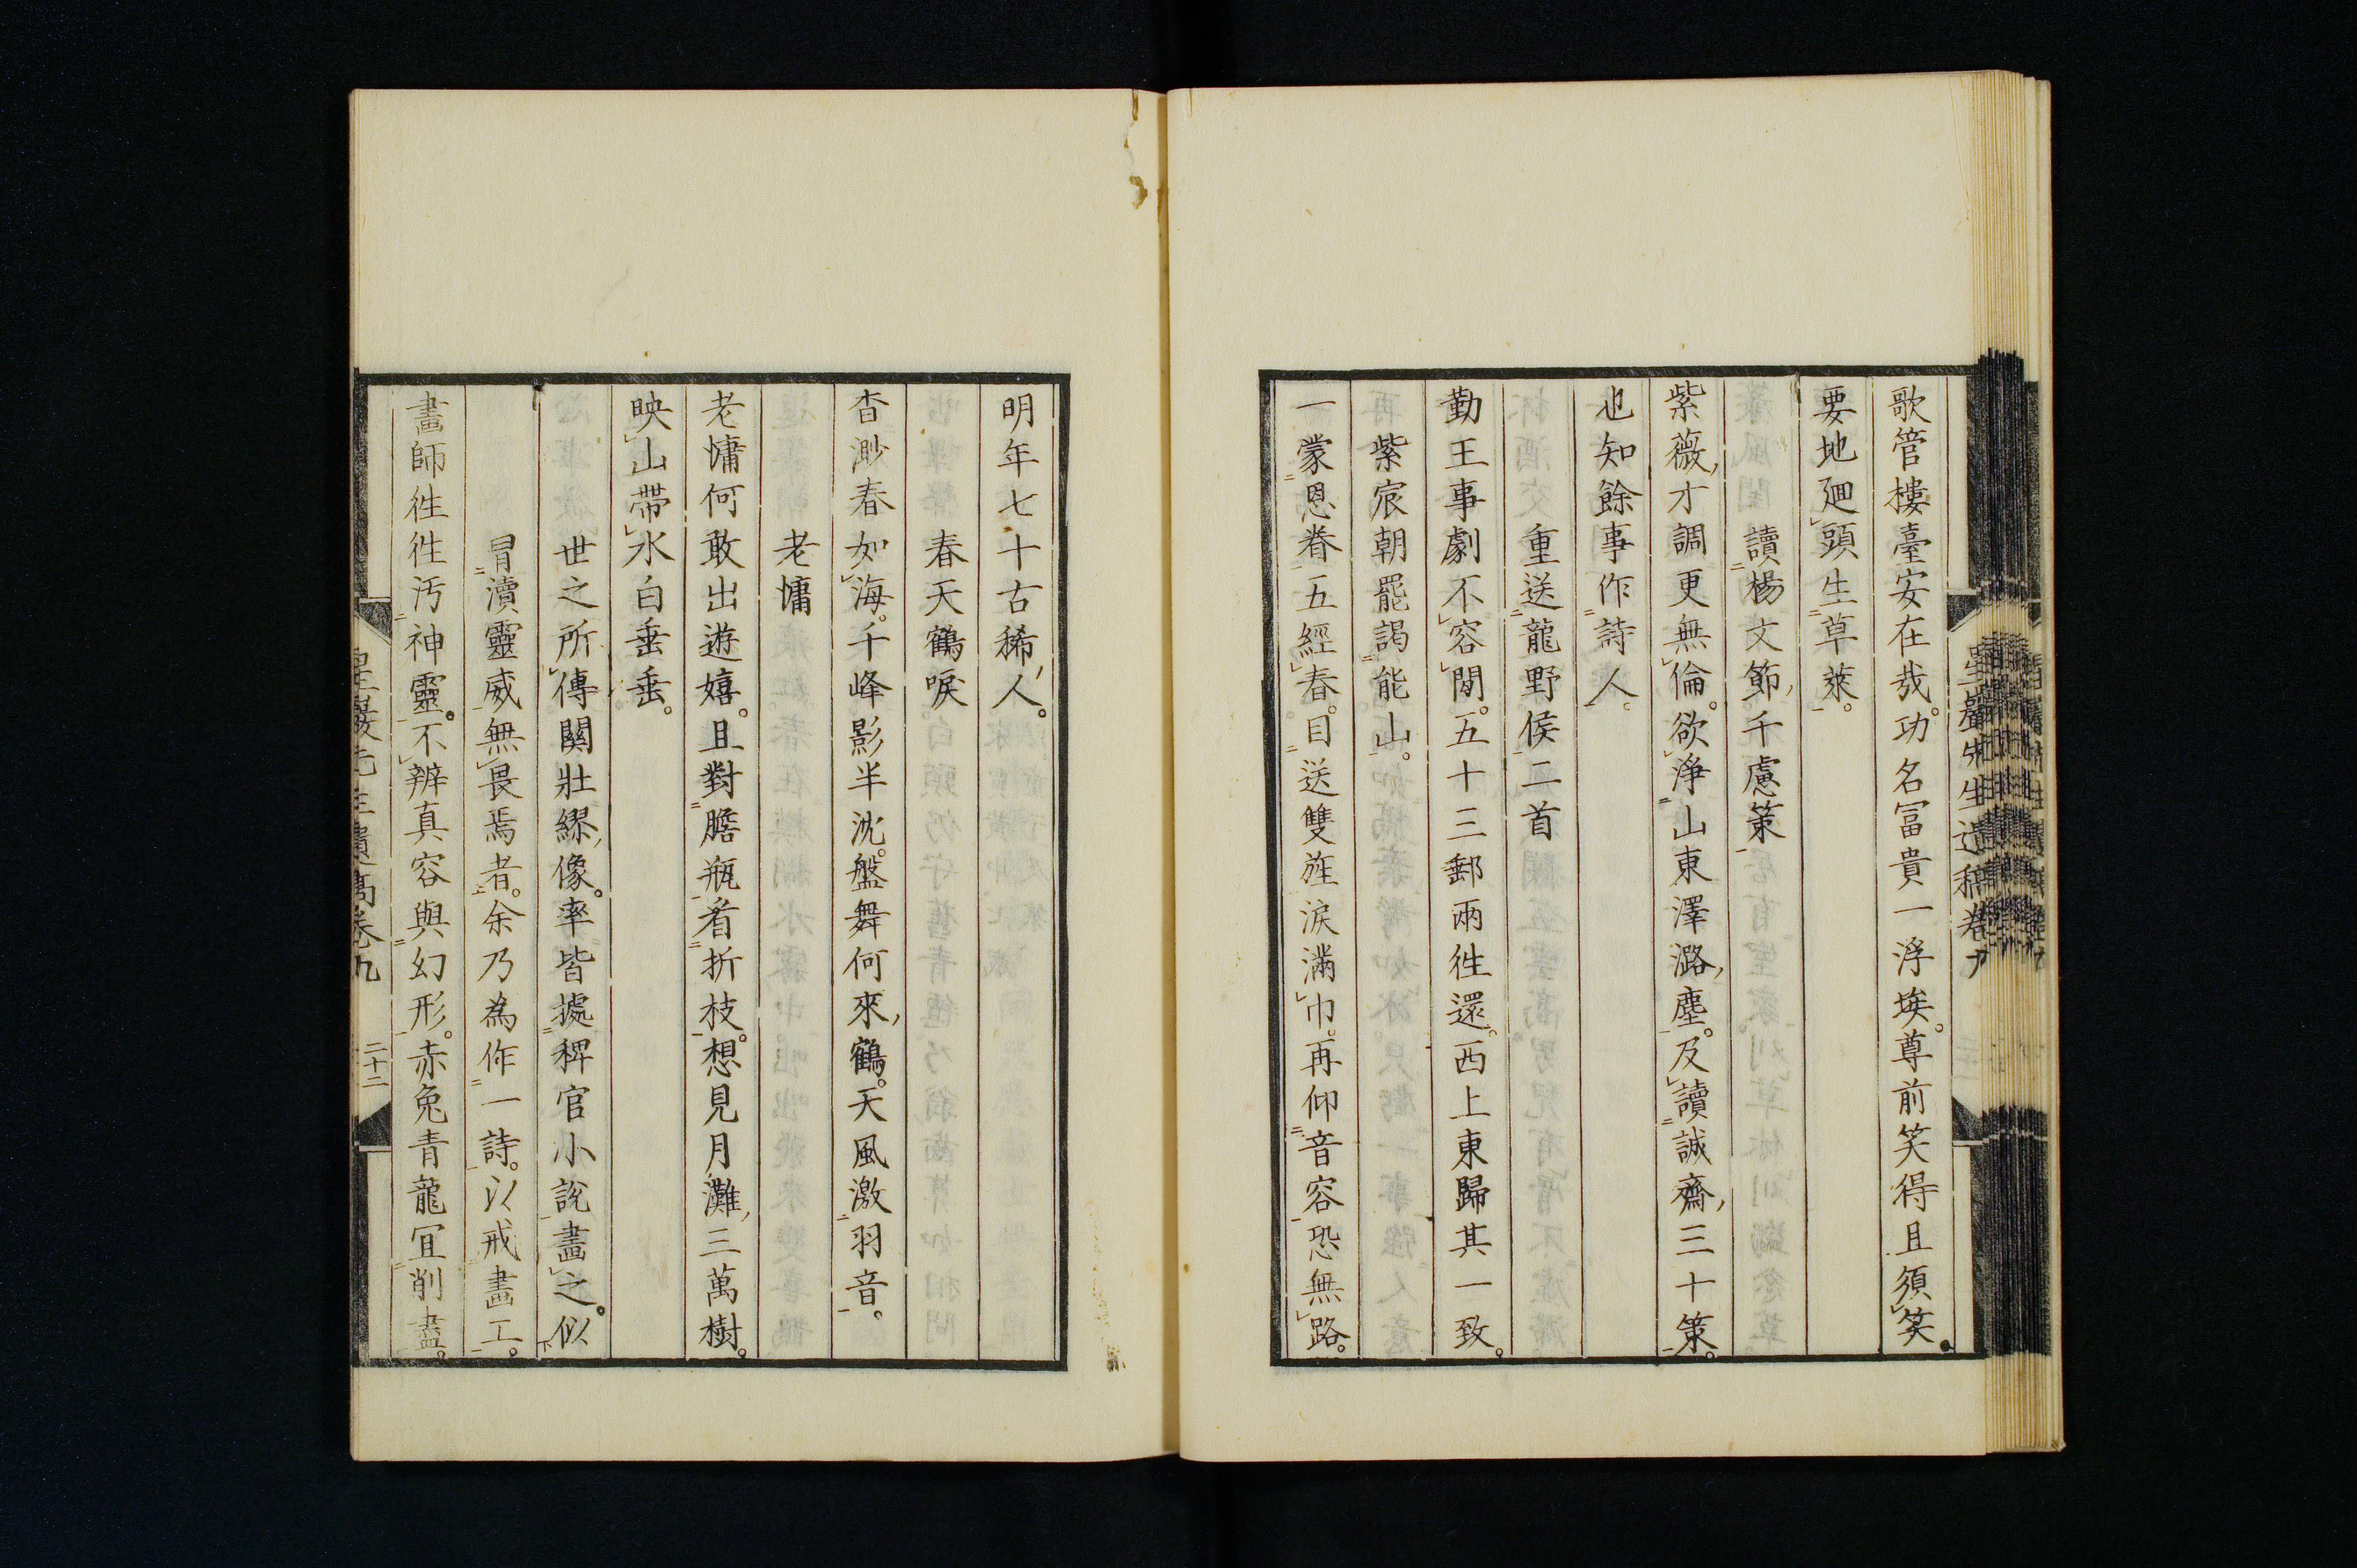 歌管樓臺安在哉。功名冨貴一浮埃。尊前笑得且須笑。
要地廻頭生草萊。
讀楊文節千慮策
紫薇才調更無倫。欲淨山東澤潞塵。及讀誠齋三十策。
也知餘事作詩人。
重送龍野侯二首
勤王事劇不容閒。五十三郵兩徃還。西上東歸其一致。
紫宸朝罷謁能山。
一蒙恩眷五經春。目送雙旌淚滿巾。再仰音容恐無路。
明年七十古稀人。
春天鶴唳
杳渺春如海。千峰影半沈。盤舞何來鶴。天風激羽音。
老慵
老慵何敢出遊嬉。且對膽瓶看折枝。想見月灘三萬樹。
映山帶水白垂垂。
世之所傳關壯繆像。率皆據稗官小說畫之。似
冒瀆靈威無畏焉者。余乃為作一詩。以戒畫工。
畫師徃徃汚神靈。不辨真容與幻形。赤兔青龍冝削盡。
星巖先生遺稿卷九
二十二